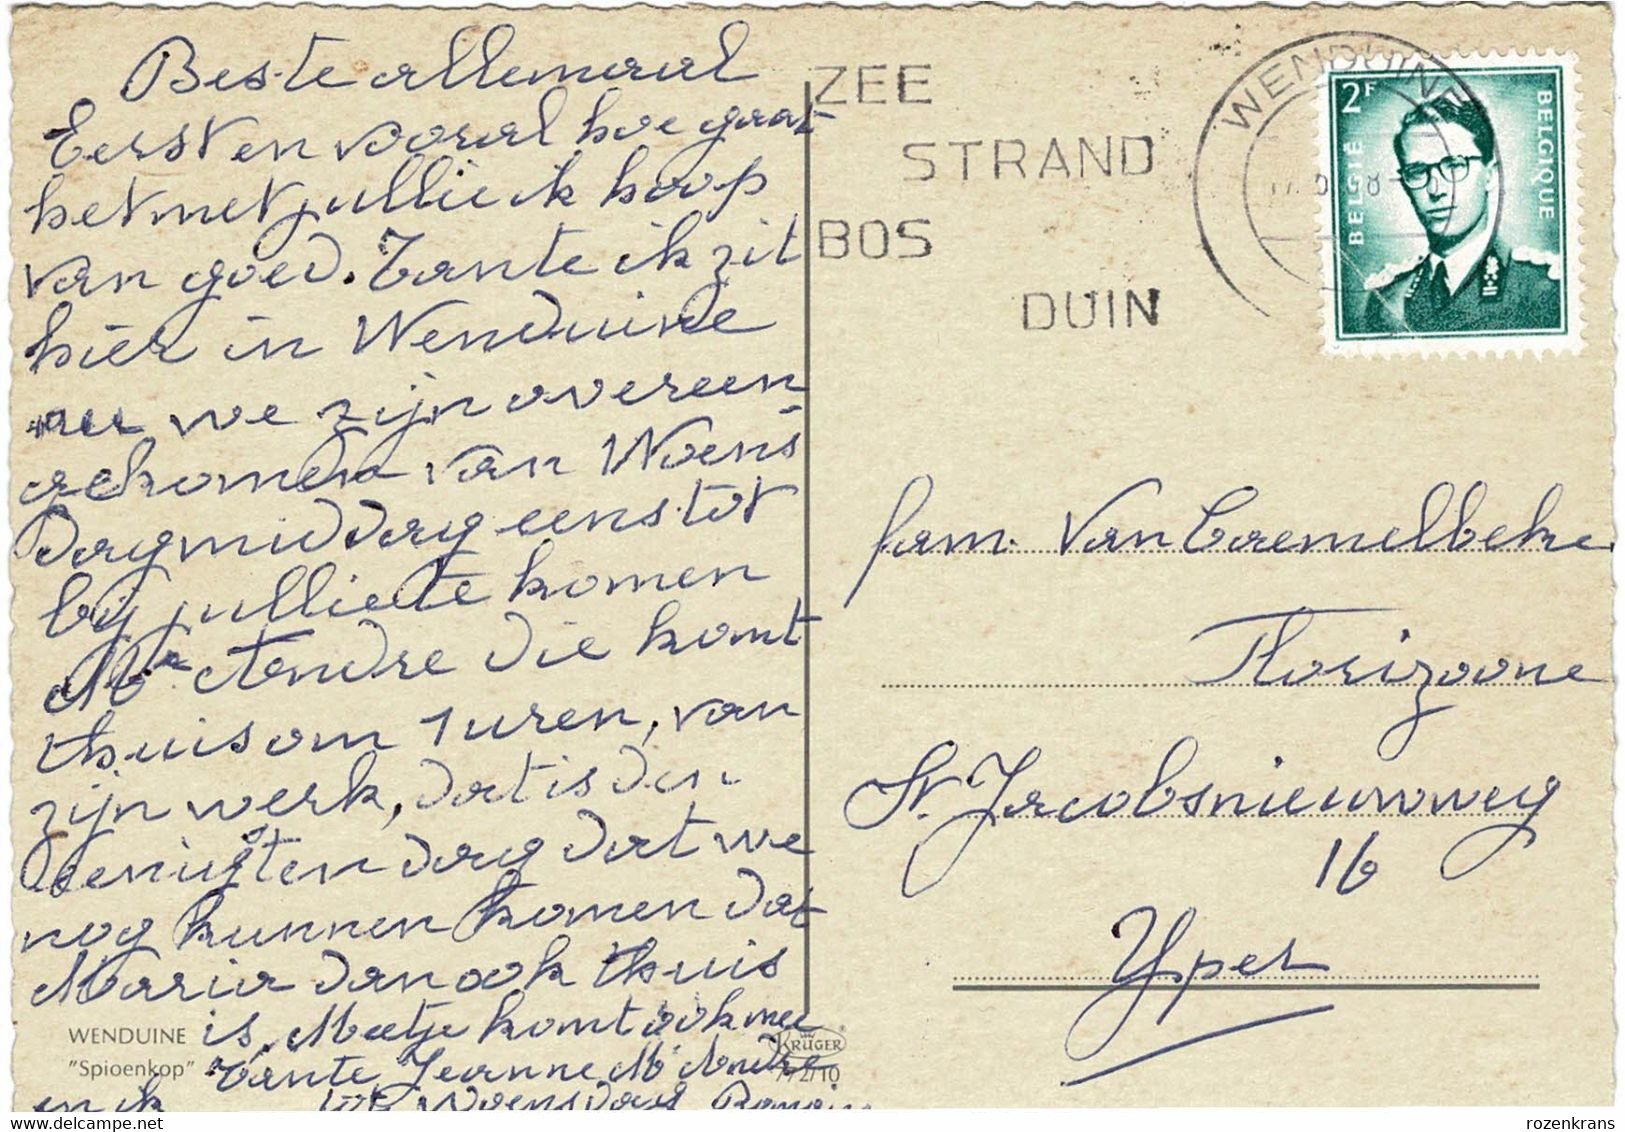 Beste allemaal
Eerst en vooral hoe gaat
het met jullie ik hoop
van goed. Tante ik zit
hier in Wenduine
nu we zijn overeen
gekomen van Woens-
dagmiddag eens tot
bij jullie te komen
Mr Andre die komt
thuis om 1 uren, van
zijn werk, dat is den
enigsten dag dat we
nog kunnen komen dat
Maria dan ook thuis
is. Meetje komt ook mee
Tante Jeanne Mr Andre
en ik tot Woensdag
ZEE
STRAND
BOS
DUIN
WENDUINE
2F
BELGIE
BELGIQUE
fam. Van Caemelbeke
Florizoone
St. Jacobsnieuwweg
16
Yper
WENDUINE
"Spioenkop"
KRÜGER
rozenkrans